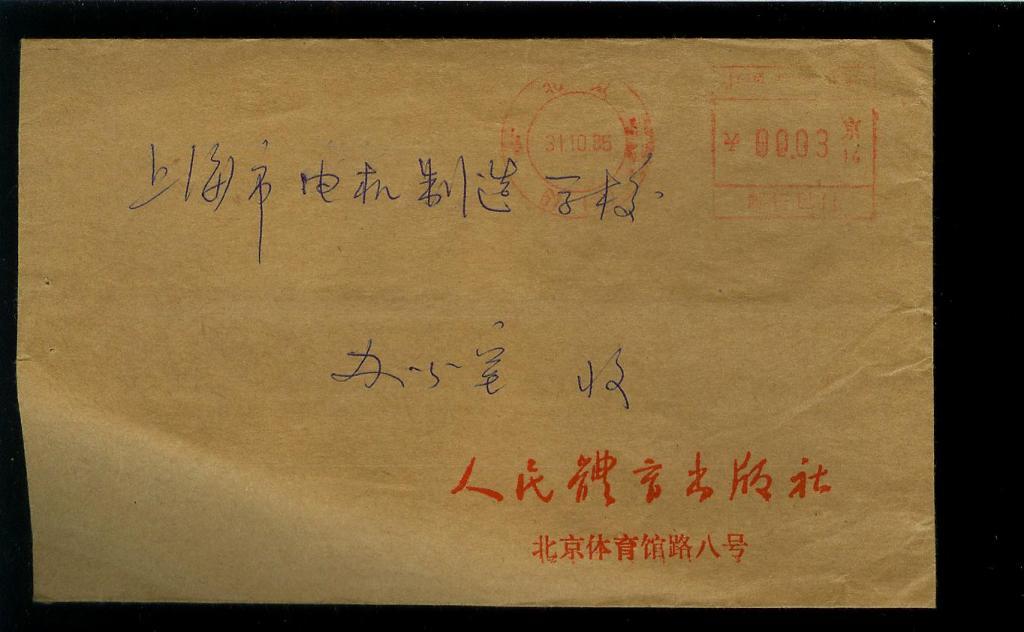 31.10.86
京
00.03
14
上海市电机制造学校
办公室 收
人民體育出版社
北京体育馆路八号